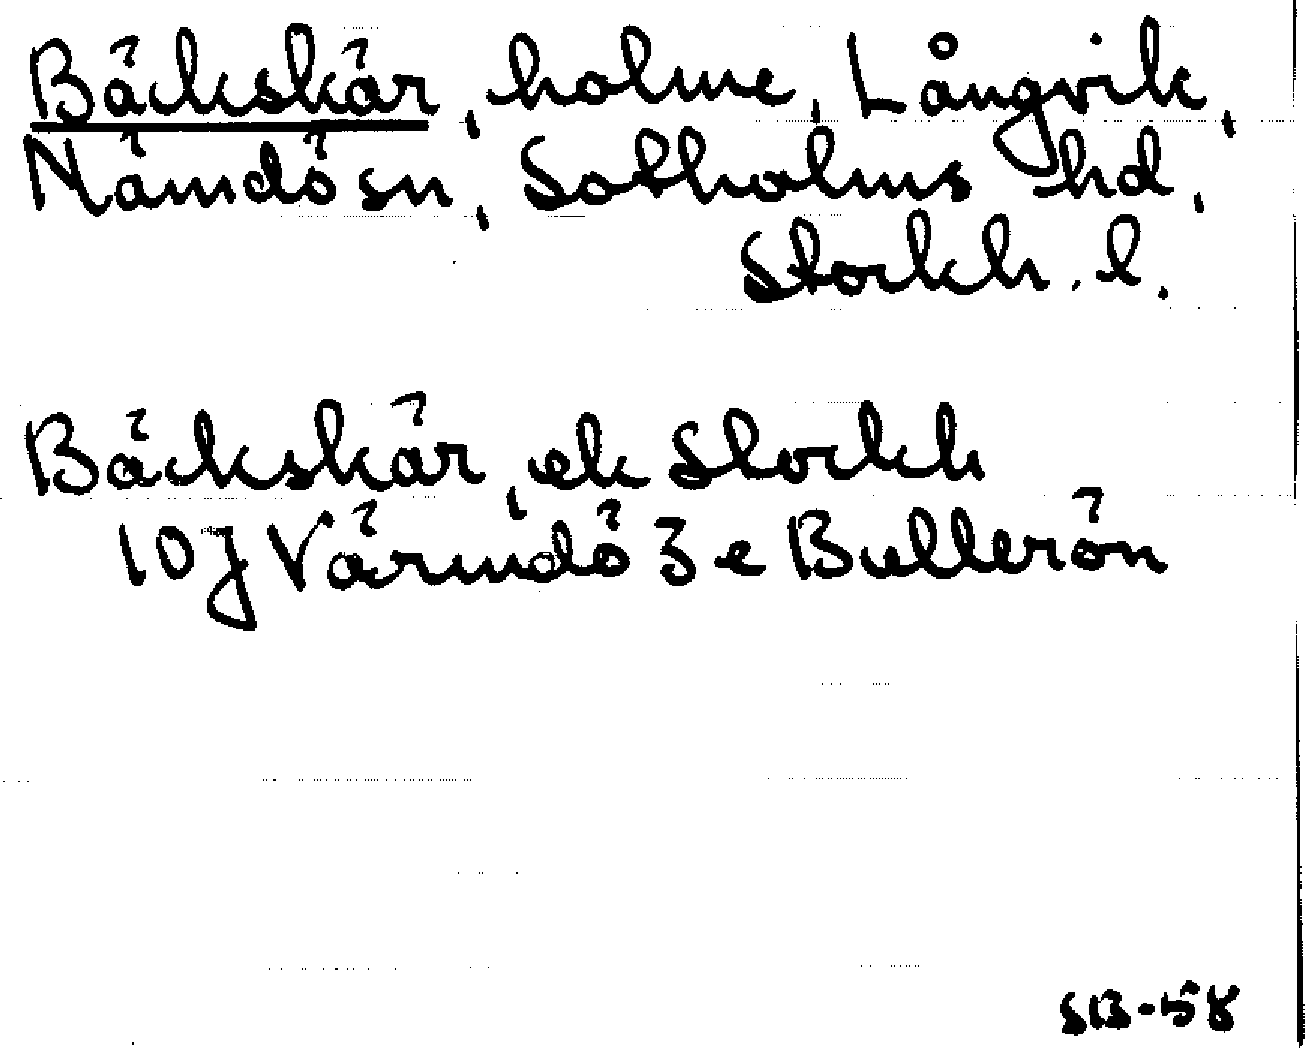 Bäckskär, holme, Långvik,
Nämdö sn, Sotholms hd,
Stockh. l.
Bäckskär, ek Stockh
10J Värmdö 3e Bullerön
SB-58